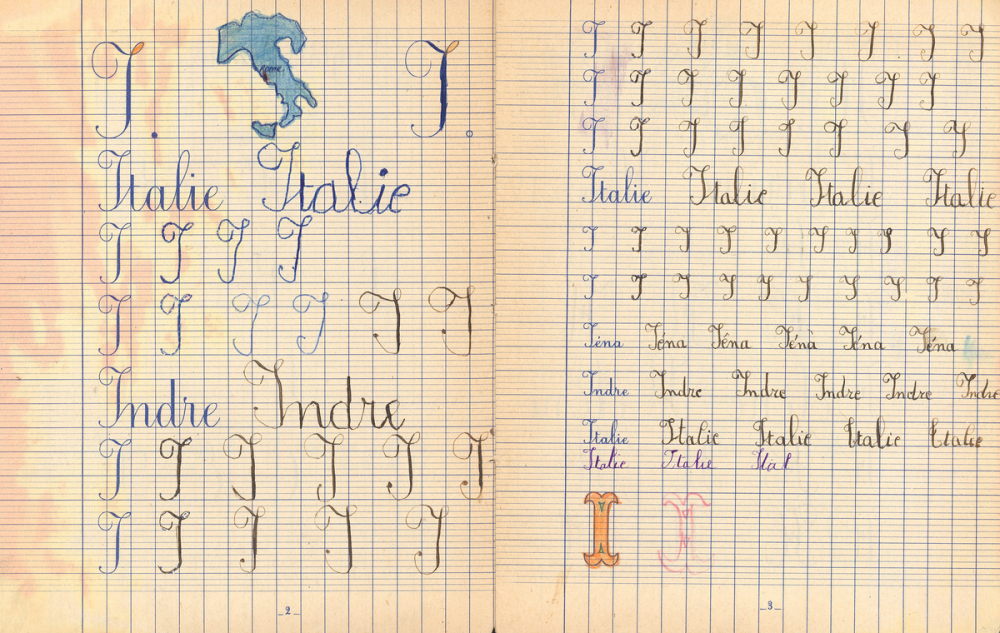 I. I.
Rome
Italie Italie
I I I I
I I I I I I
Indre Indre
I I I I I I
I I I I I
_2_
I I I I I I I I
I I I I I I I I
I I I I I I I I
Italie Italie Italie Italie
I I I I I I I I I I
I I I I I I I I I
Iéna Iéna Iéna Iéna Iéna Iéna
Indre Indre Indre Indre Indre Indre
Italie Italie Italie Italie Italie
Italie Italie Ital
I I
_3_